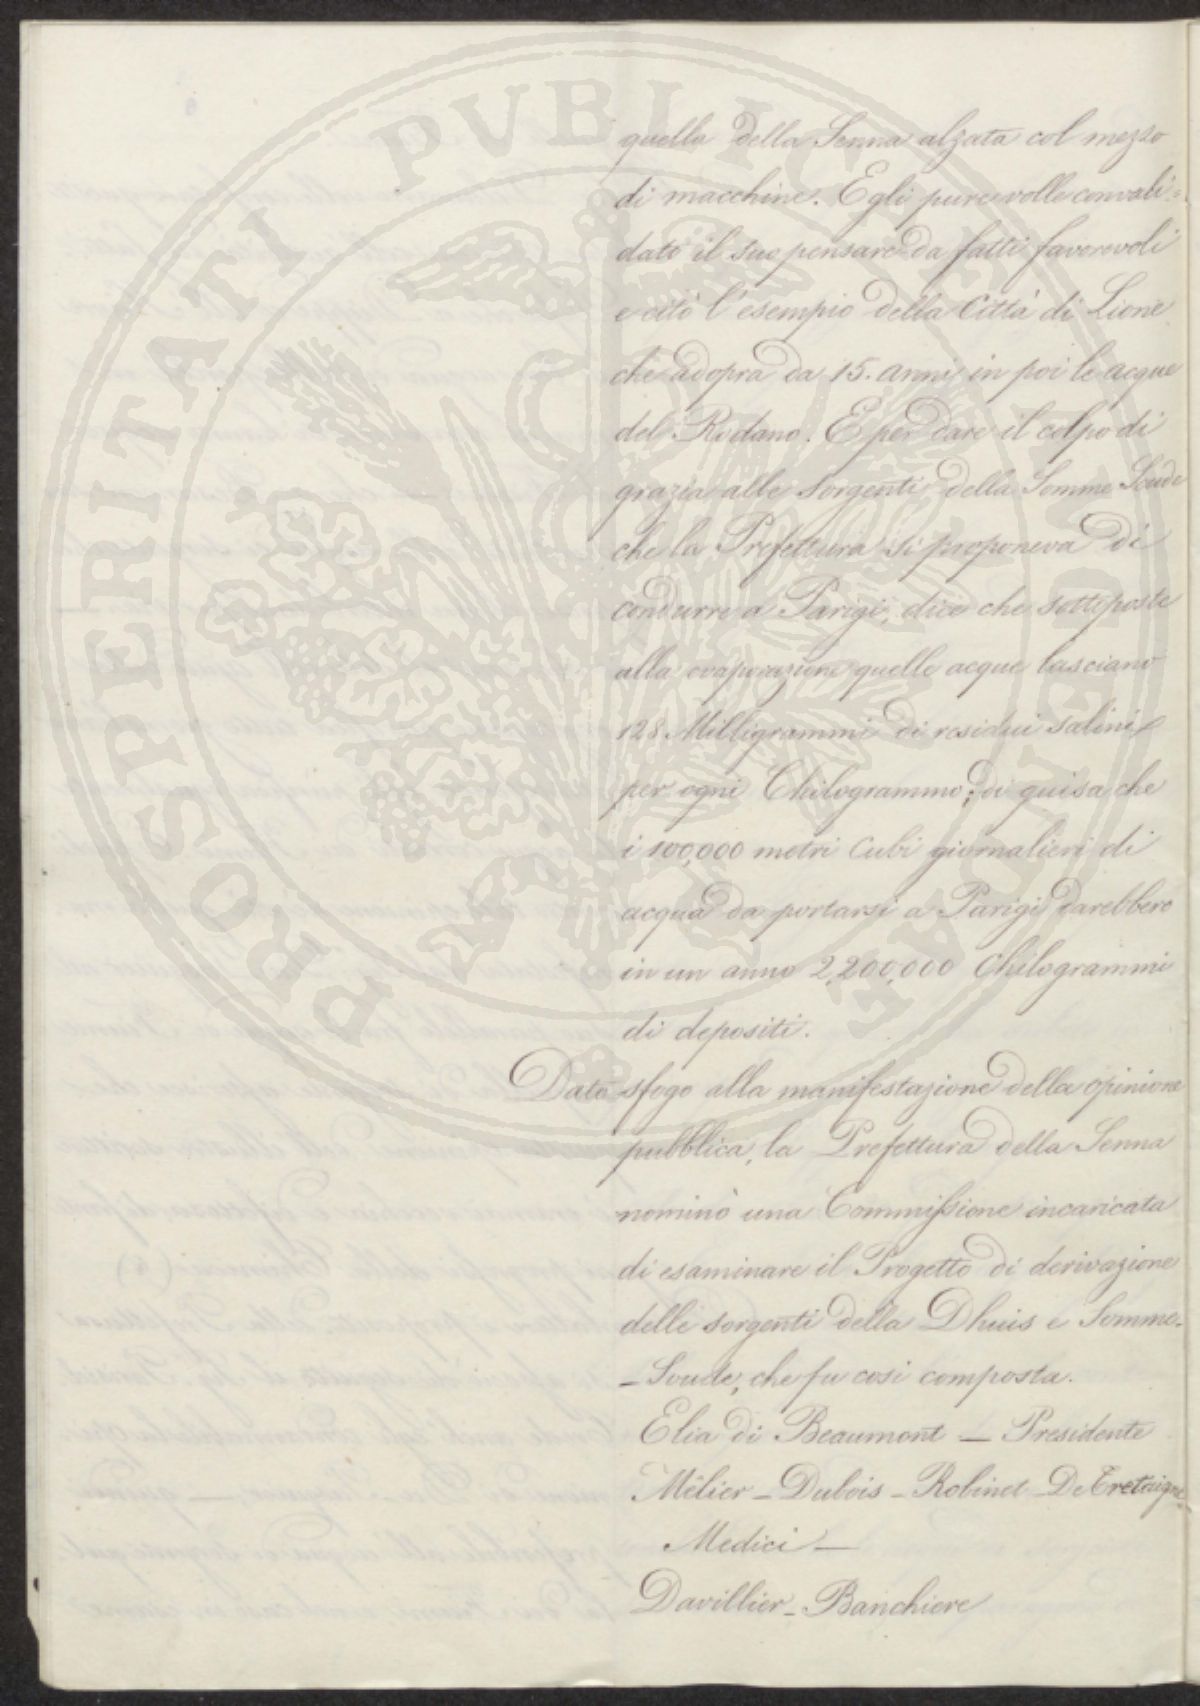 quella della Senna alzata col mezzo
di macchine. Egli pure volle convali=
dato il suo pensare da fatti favorevoli
e citò l'esempio della Città di Lione
che adopra da 15. anni in poi le acque
del Rodano. E per dare il colpo di
grazia alle sorgenti della Somme Soude
che la Prefettura si proponeva di
condurre a Parigi, dice che sottoposte
alla evaporazione quelle acque lasciano
128 Milligrammi di residui salini
per ogni Chilogrammo; di guisa che
i 100,000 metri Cubi giornalieri di
acqua da portarsi a Parigi darebbero
in un anno 2,200,000 Chilogrammi
di depositi.
Dato sfogo alla manifestazione della opinione
pubblica, la Prefettura della Senna
nominò una Commissione incaricata
di esaminare il Progetto di derivazione
delle sorgenti della Dhuis e Somme-
-Soude, che fu così composta.
Elia di Beaumont — Presidente
Mêlier - Dubois - Robinet - De Tretaigne
Medici —
Davillier - Banchiere
PROSPERITATI PVBLICAE AVGENDAE